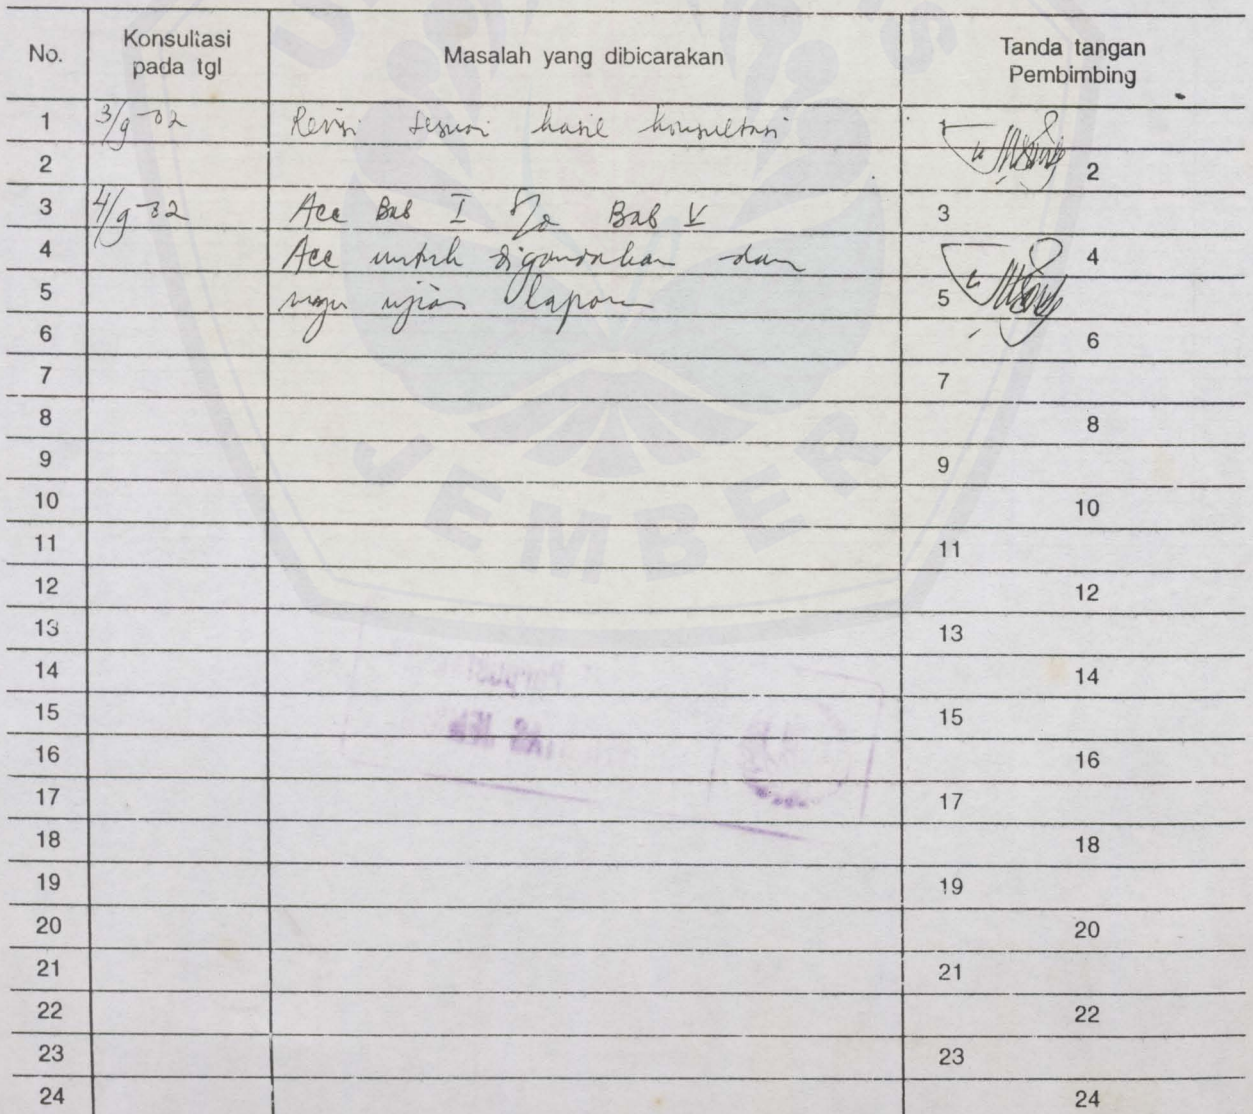 No. Konsultasi pada tgl Masalah yang dibicarakan Tanda tangan Pembimbing
1 3/9-02 Revisi sesuai hasil konsultasi 1
2 2
3 4/9-02 Acc Bab I s/d Bab V 3
4 Acc untuk digandakan dan 4
5 ujian lapor 5
6 6
7 7
8 8
9 9
10 10
11 11
12 12
13 13
14 14
15 15
16 16
17 17
18 18
19 19
20 20
21 21
22 22
23 23
24 24
JEMBER